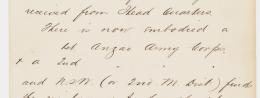 received from Head Quarters.
There is now embodied a
1st Anzac Army Corps
+ a 2nd " " "
and N.S.W. (or 2nd M. Dist)